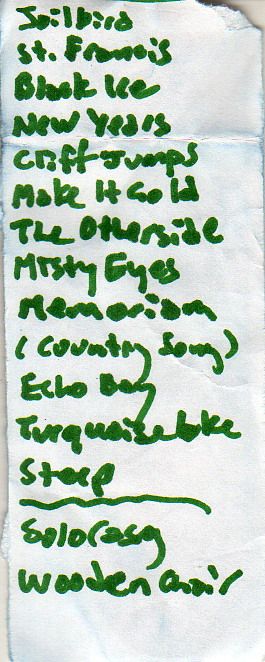 Jailbird
St. Francis
Black Ice
New Years
Cliff Jumps
Make It Gold
The Otherside
Misty Eyes
Memoriam
(Country Song)
Echo Bay
Turquoise Lake
Steep
Solo Casey
Wooden Chair